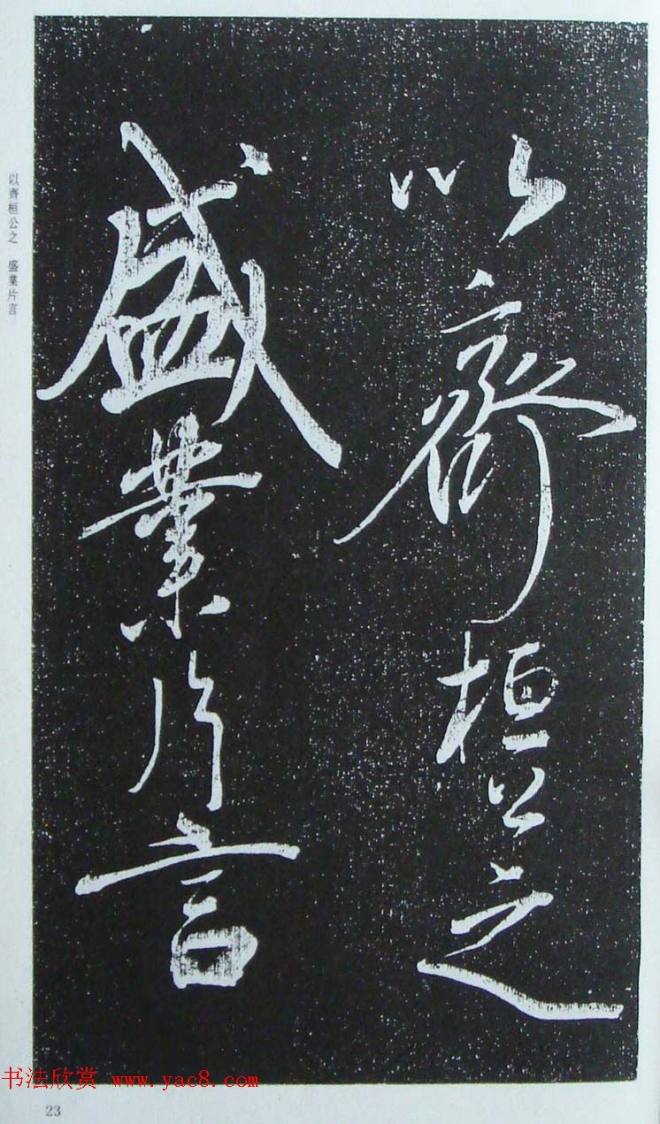 以齊桓公之
盛業片言
以齊桓公之 盛業片言
书法欣赏 www.yac8.com
23